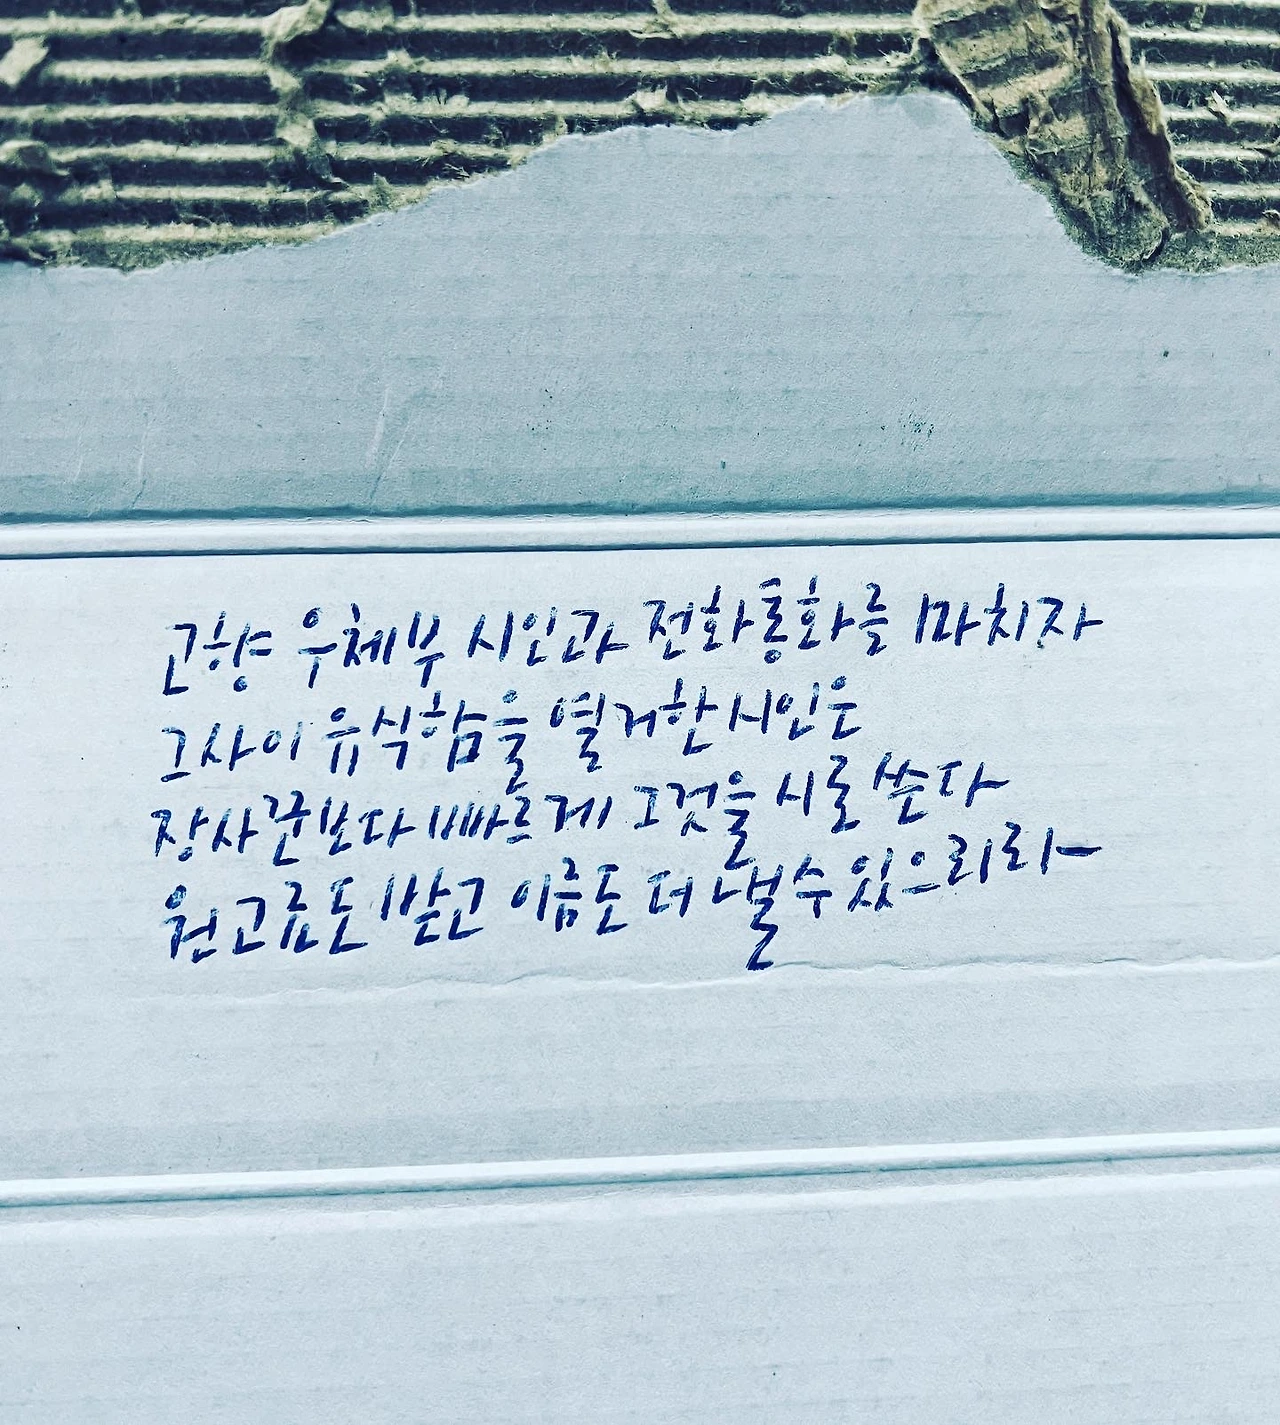 고향 우체부 시인과 전화통화를 마치자
그사이 유식함을 열거한 시인은
장사꾼보다 빠르게 그것을 시로 쓴다
원고료도 받고 이름도 더 낼 수 있으리라